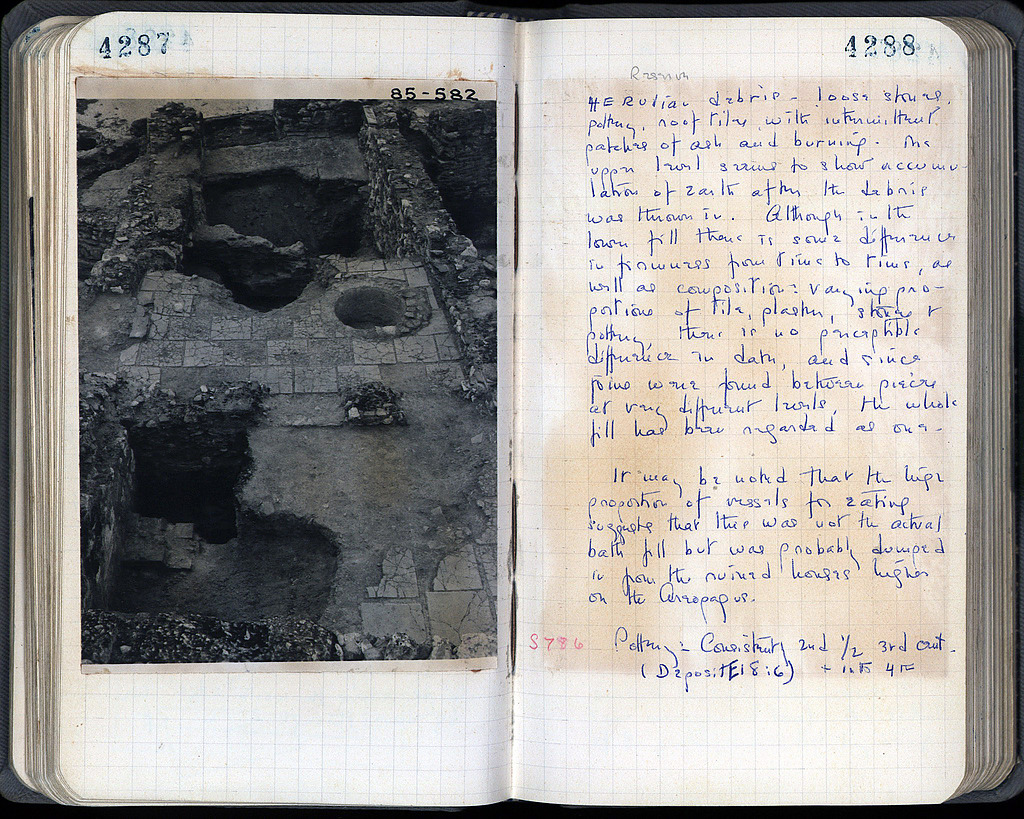 4287
85-582
4288
HERULIAN debris - loose stones,
pottery, roof tiles, with intermittent
patches of ash and burning. The
upper level seems to show accumu-
lation of earth after the debris
was thrown in. Although in the
lower fill there is some difference
in firmness from time to time, as
well as composition: varying pro-
portions of tile, plaster, stones &
pottery there is no perceptible
difference in date, and since
joins were found between pieces
at very different levels, the whole
fill has been regarded as one.
It may be noted that the high
proportion of vessels for eating
suggests that this was not the actual
bath fill but was probably dumped
in from the ruined houses higher
on the Areopagus.
S786 Pottery: Consistently 2nd 1/2 3rd cent.
(Deposit E18:6) + into 4th